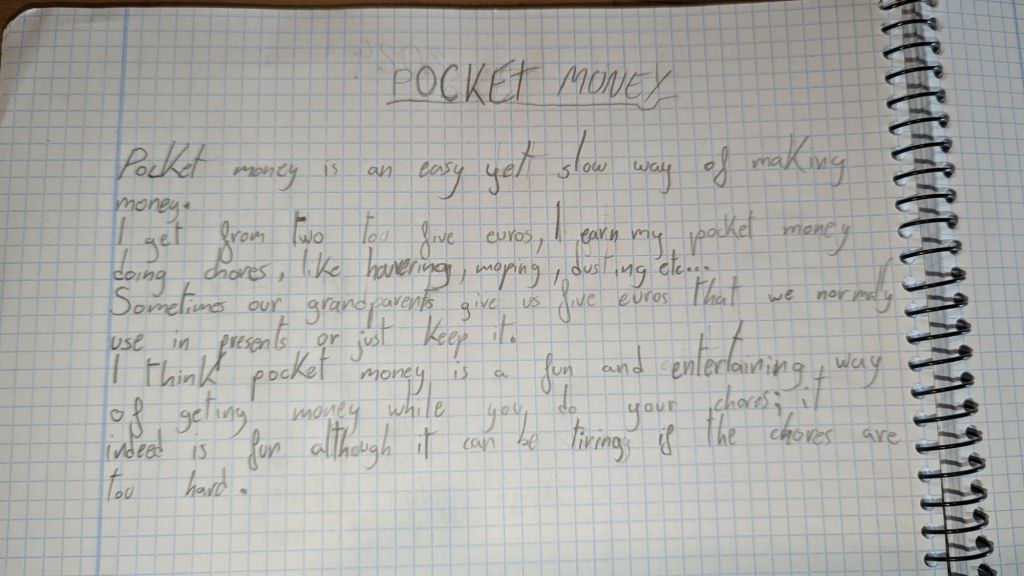 POCKET MONEY
Pocket money is an easy yet slow way of making
money.
I get from two too five euros, I earn my pocket money
doing chores, like hovering, moping, dusting etc...
Sometimes our grandparents give us five euros that we normaly
use in presents or just keep it.
I think pocket money is a fun and entertaining, way
of geting money while you do your chores; it
indeed is fun although it can be tiring, if the chores are
too hard.